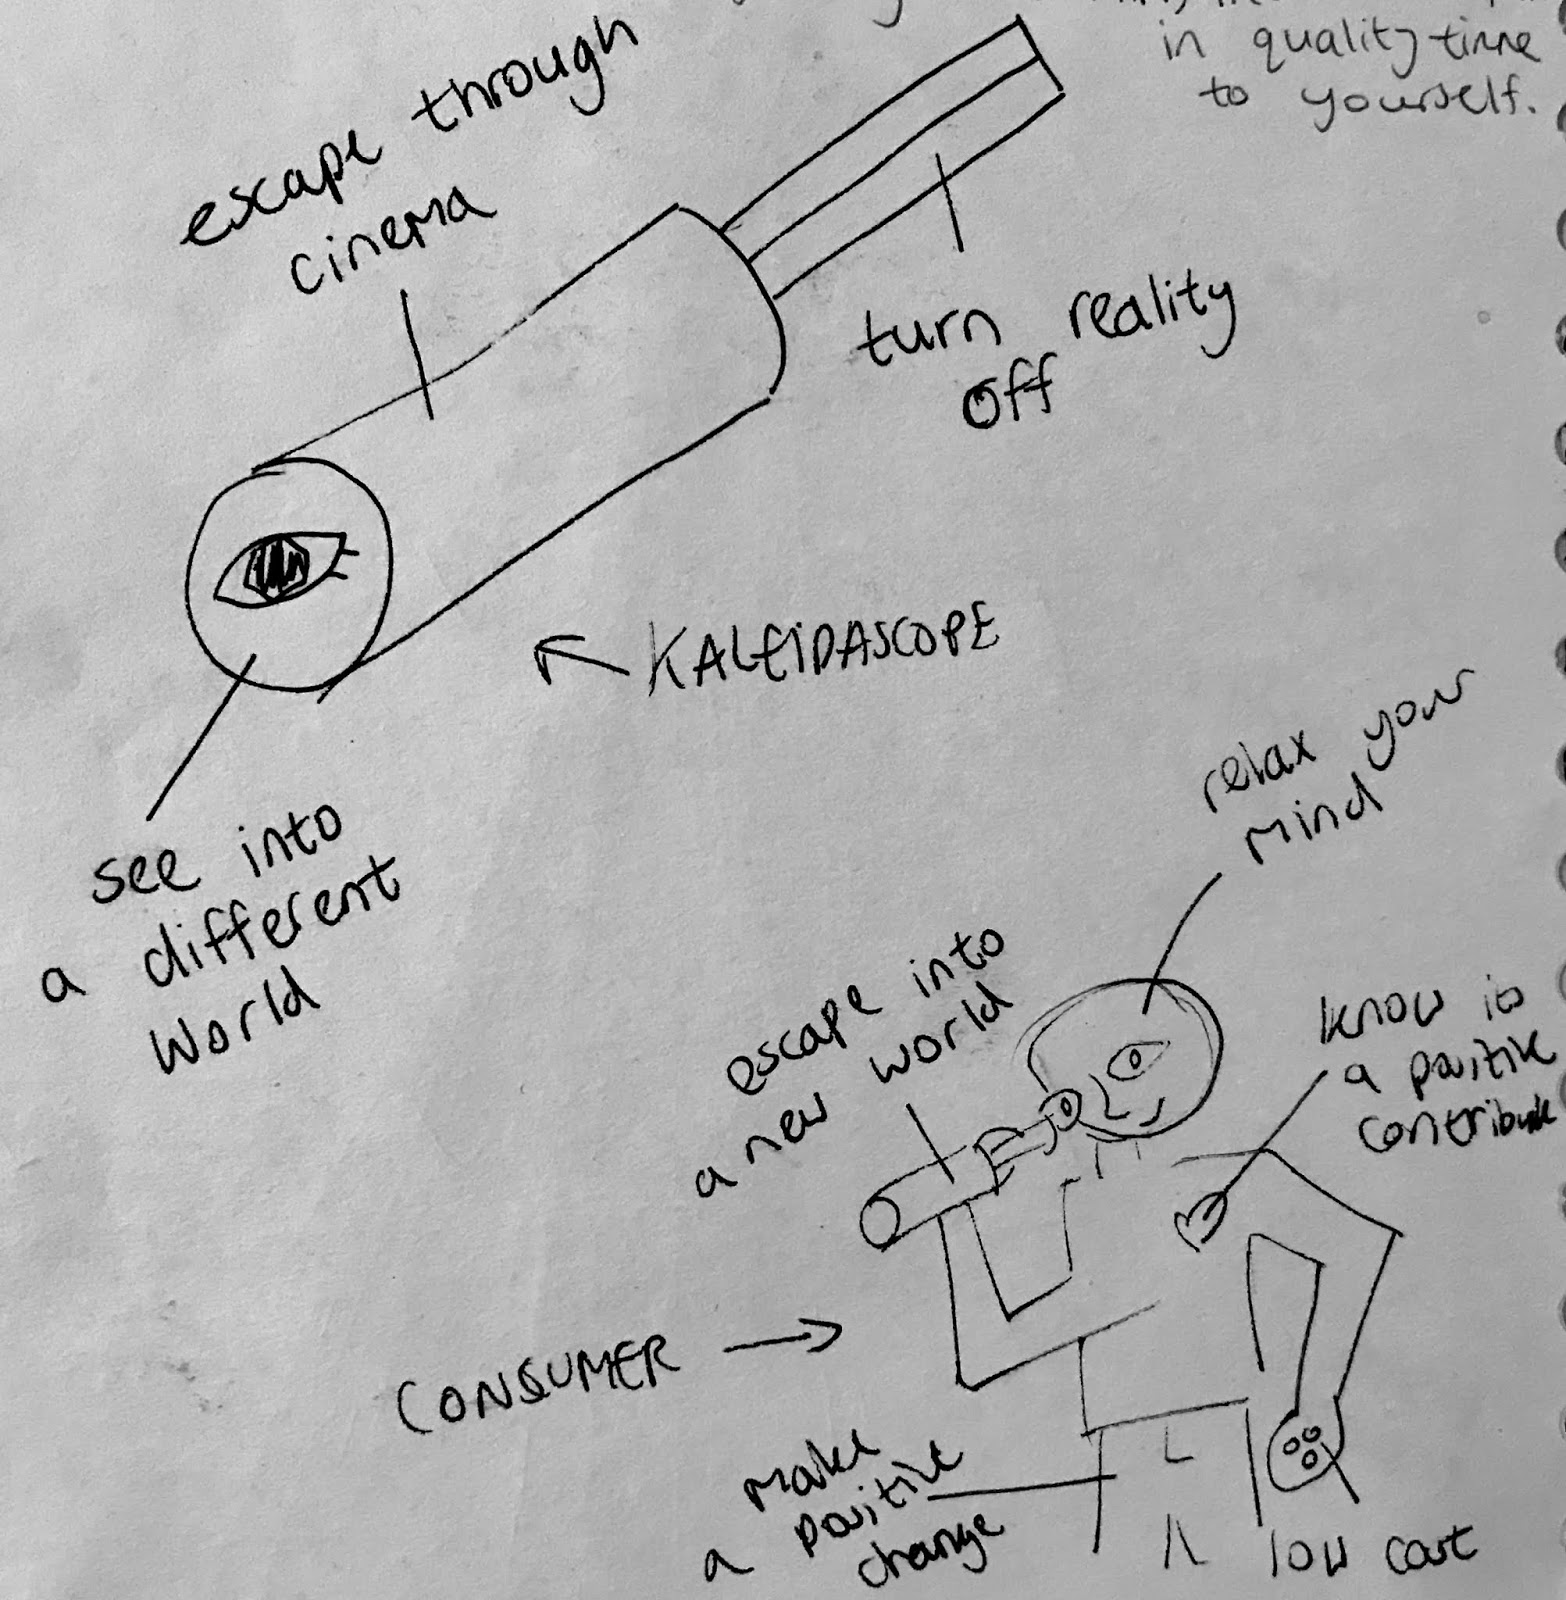 in quality time
to yourself.
escape through
cinema
turn reality
off
KALEIDASCOPE
see into
a different
World
relax your
mind
escape into
a new world
know is
a positive
CONSUMER
make
a positive
change
low cost